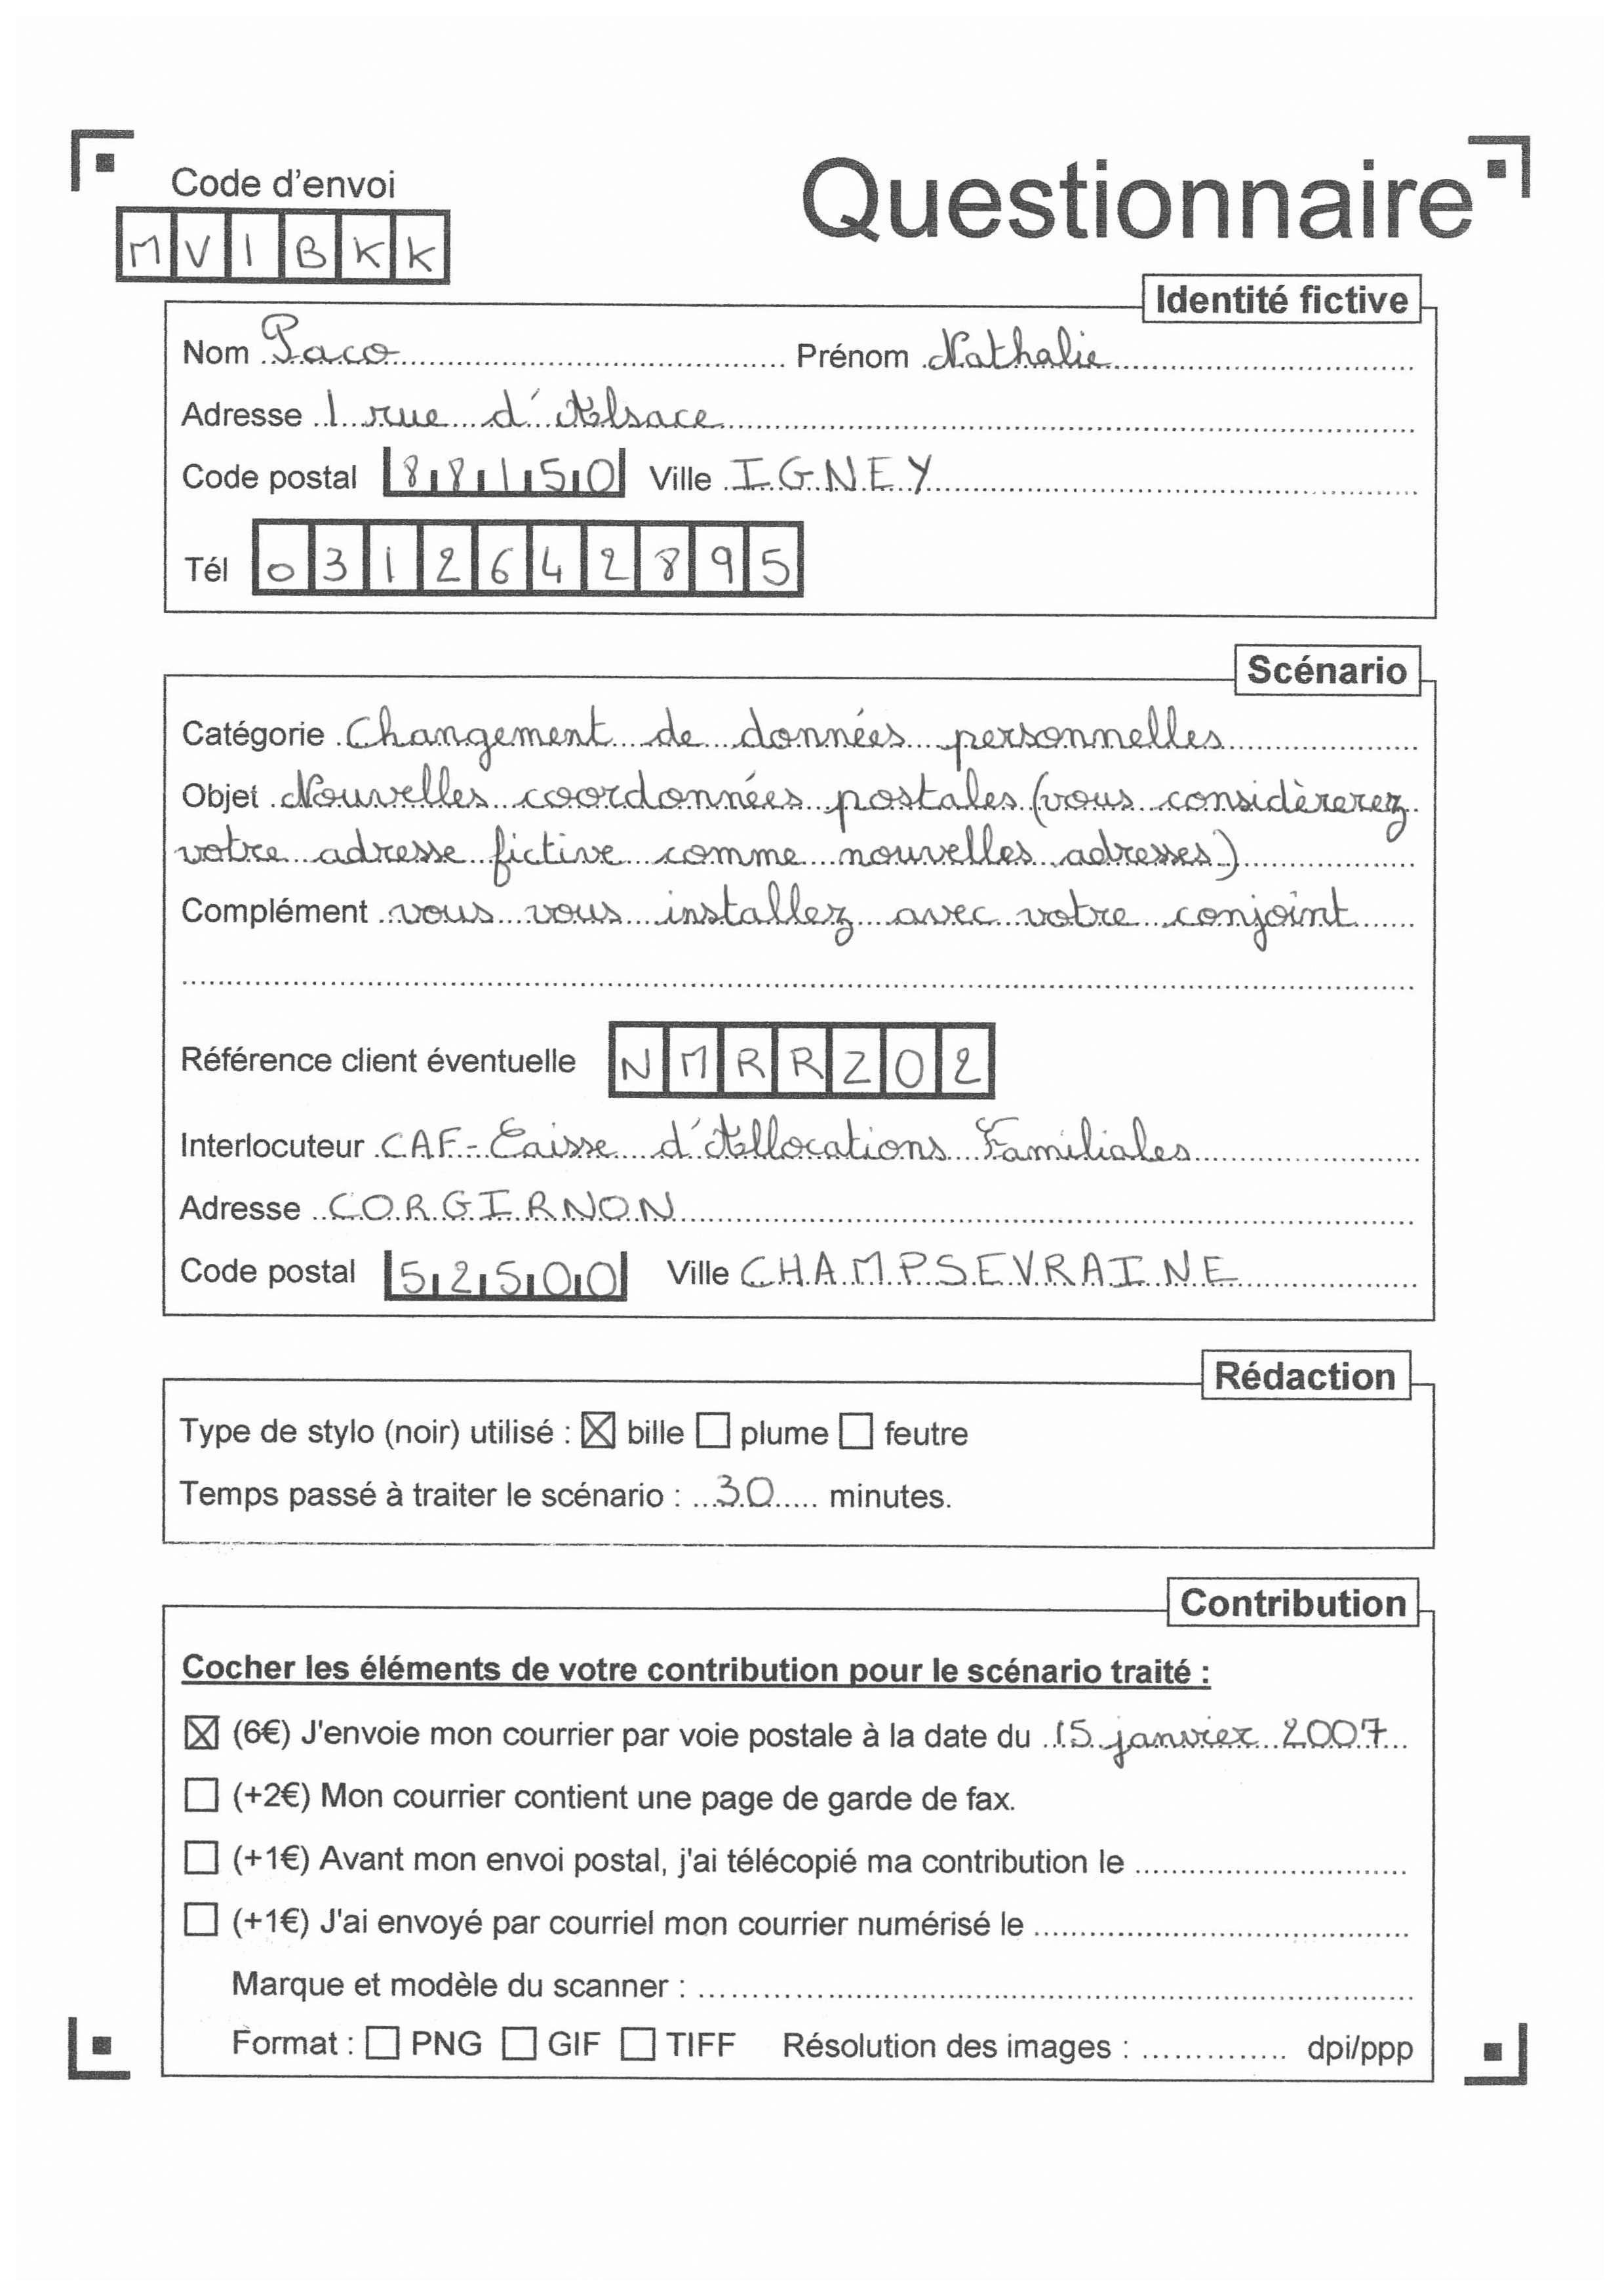 Code d'envoi
Questionnaire
MVIBKK
Identité fictive
Nom Paco Prénom Nathalie
Adresse 1 rue d'Alsace
Code postal 88150 Ville IGNEY
Tél 0312642895
Scénario
Catégorie Changement de données personnelles
Objet Nouvelles coordonnées postales (vous considèrerez
votre adresse fictive comme nouvelles adresses)
Complément vous vous installez avec votre conjoint
Référence client éventuelle NMRRZ02
Interlocuteur CAF - Caisse d'Allocations Familiales
Adresse CORGIRNON
Code postal 52500 Ville CHAMPSEVRAINE
Rédaction
Type de stylo (noir) utilisé : ☒ bille ☐ plume ☐ feutre
Temps passé à traiter le scénario : 30 minutes.
Contribution
Cocher les éléments de votre contribution pour le scénario traité :
☒ (6€) J'envoie mon courrier par voie postale à la date du 15 janvier 2007
☐ (+2€) Mon courrier contient une page de garde de fax.
☐ (+1€) Avant mon envoi postal, j'ai télécopié ma contribution le
☐ (+1€) J'ai envoyé par courriel mon courrier numérisé le
Marque et modèle du scanner :
Format : ☐ PNG ☐ GIF ☐ TIFF Résolution des images : dpi/ppp